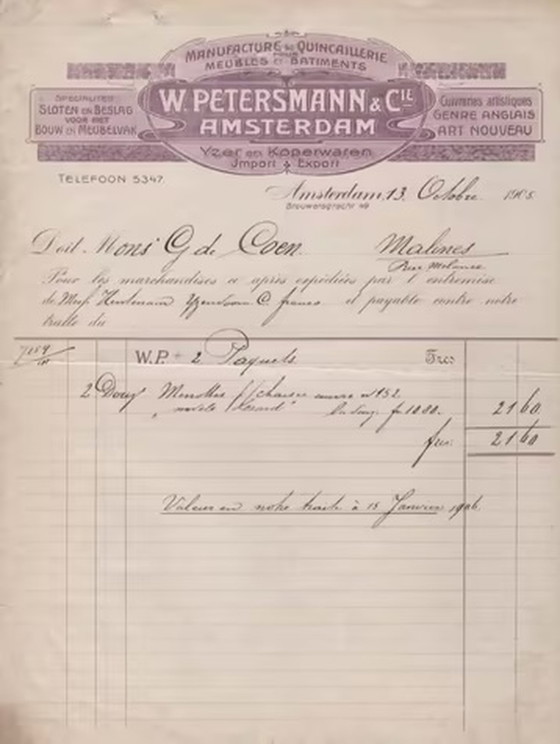 MANUFACTURE DE QUINCAILLERIE
POUR
MEUBLES ET BATIMENTS
SPECIALITEIT
SLOTEN EN BESLAG
VOOR HET
BOUW EN MEUBELVAK
W. PETERSMANN & CIE
AMSTERDAM
Cuivreries artistiques
GENRE ANGLAIS
ART NOUVEAU
Yzer en Koperwaren
Import & Export
TELEFOON 5347.
Amsterdam, 13. Octobre 1905
Brouwersgracht 49
Doit Mons G de Coen. Malines
Rue Melane
Pour les marchandises ci après expédiées par l'entremise
de Mess franco et payable contre notre
traite du
W.P. 2 Paquets Frcs
2 Douz Menottes chaises cuivre No 452
fr 10.80. 21 60
frs: 21 60
Valeur en notre traite à 15 Janvier 1906.